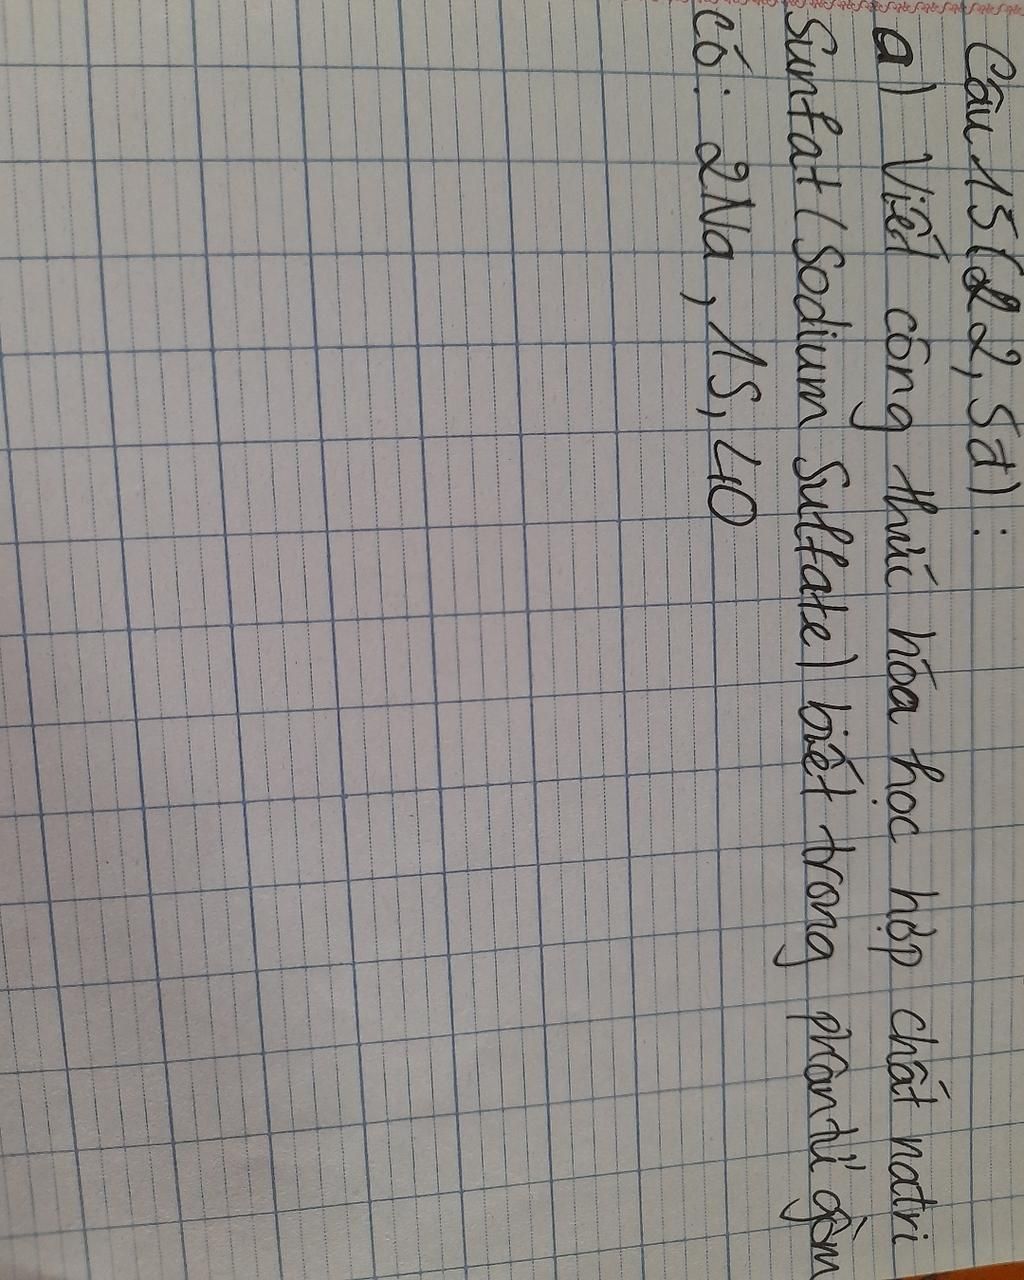 Câu 15 (2 2,5đ):
a) Viết công thức hóa học hợp chất natri
Sunfat (Sodium Sulfate) biết trong phân tử gồm
có: 2Na, 1S, 4O